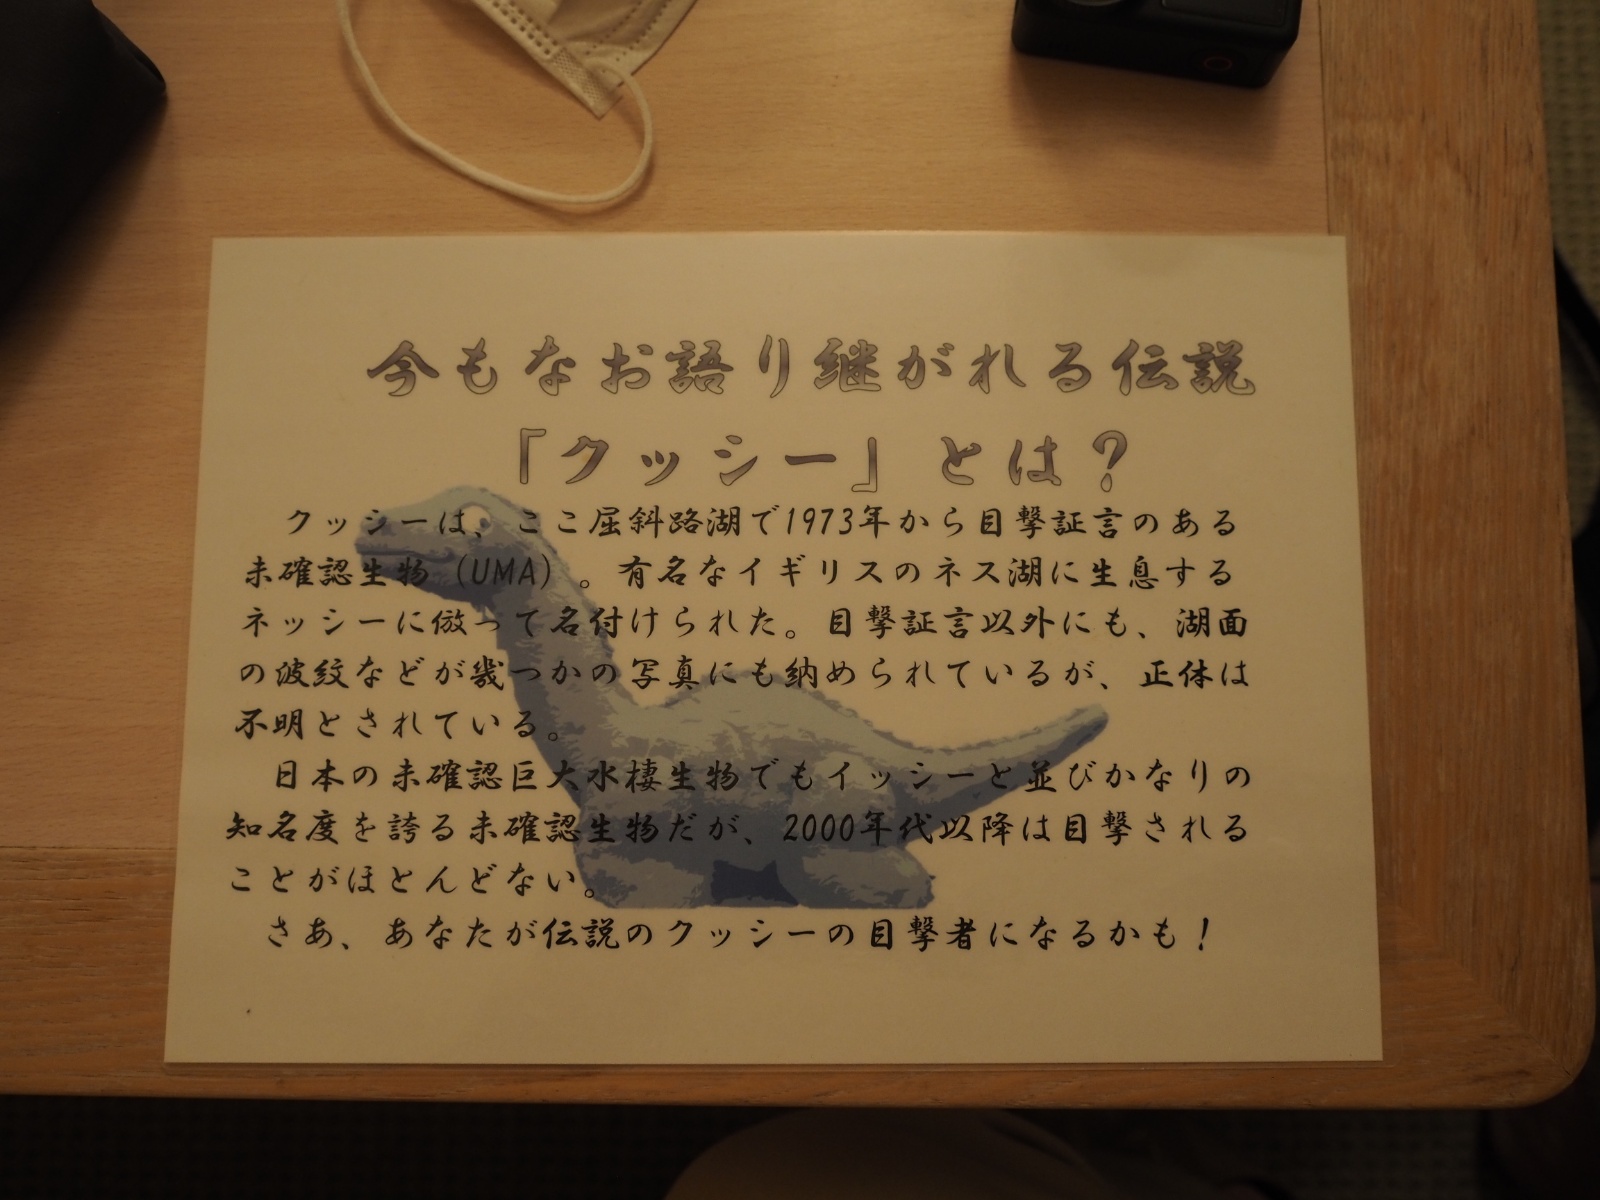 今もなお語り継がれる伝説
「クッシー」とは？
クッシーは、ここ屈斜路湖で1973年から目撃証言のある
未確認生物（UMA）。有名なイギリスのネス湖に生息する
ネッシーに倣って名付けられた。目撃証言以外にも、湖面
の波紋などが幾つかの写真にも納められているが、正体は
不明とされている。
日本の未確認巨大水棲生物でもイッシーと並びかなりの
知名度を誇る未確認生物だが、2000年代以降は目撃される
ことがほとんどない。
さあ、あなたが伝説のクッシーの目撃者になるかも！